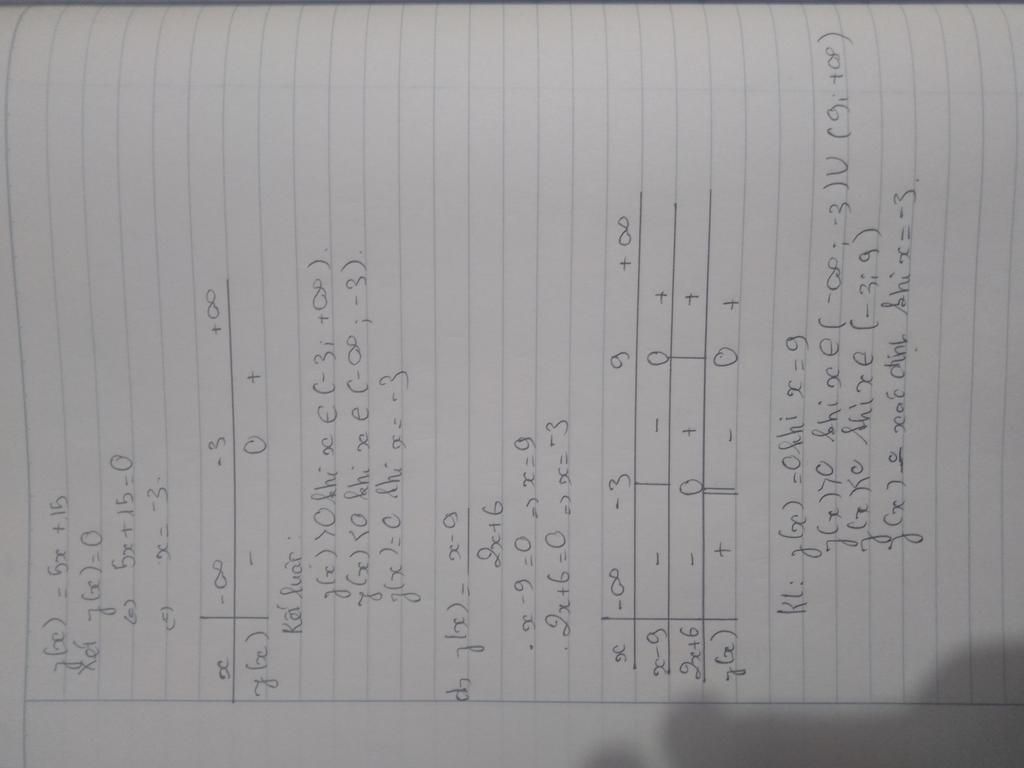 f(x) = 5x + 15
Xét f(x) = 0
⇔ 5x + 15 = 0
⇔ x = -3.
x -∞ -3 +∞
f(x) - 0 +
Kết luận:
f(x) > 0 khi x ∈ (-3; +∞).
f(x) < 0 khi x ∈ (-∞; -3).
f(x) = 0 khi x = -3
d, f(x) = x-9 / 2x+6
. x - 9 = 0 => x = 9
. 2x + 6 = 0 => x = -3
x -∞ -3 9 +∞
x-9 - | - 0 +
2x+6 - 0 + | +
f(x) + || - 0 +
KL: f(x) = 0 khi x = 9
f(x) > 0 khi x ∈ (-∞; -3) U (9; +∞)
f(x) < 0 khi x ∈ (-3; 9)
f(x) xác định khi x = -3.